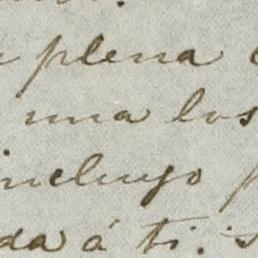 plena
una los
incluyo
da á ti.